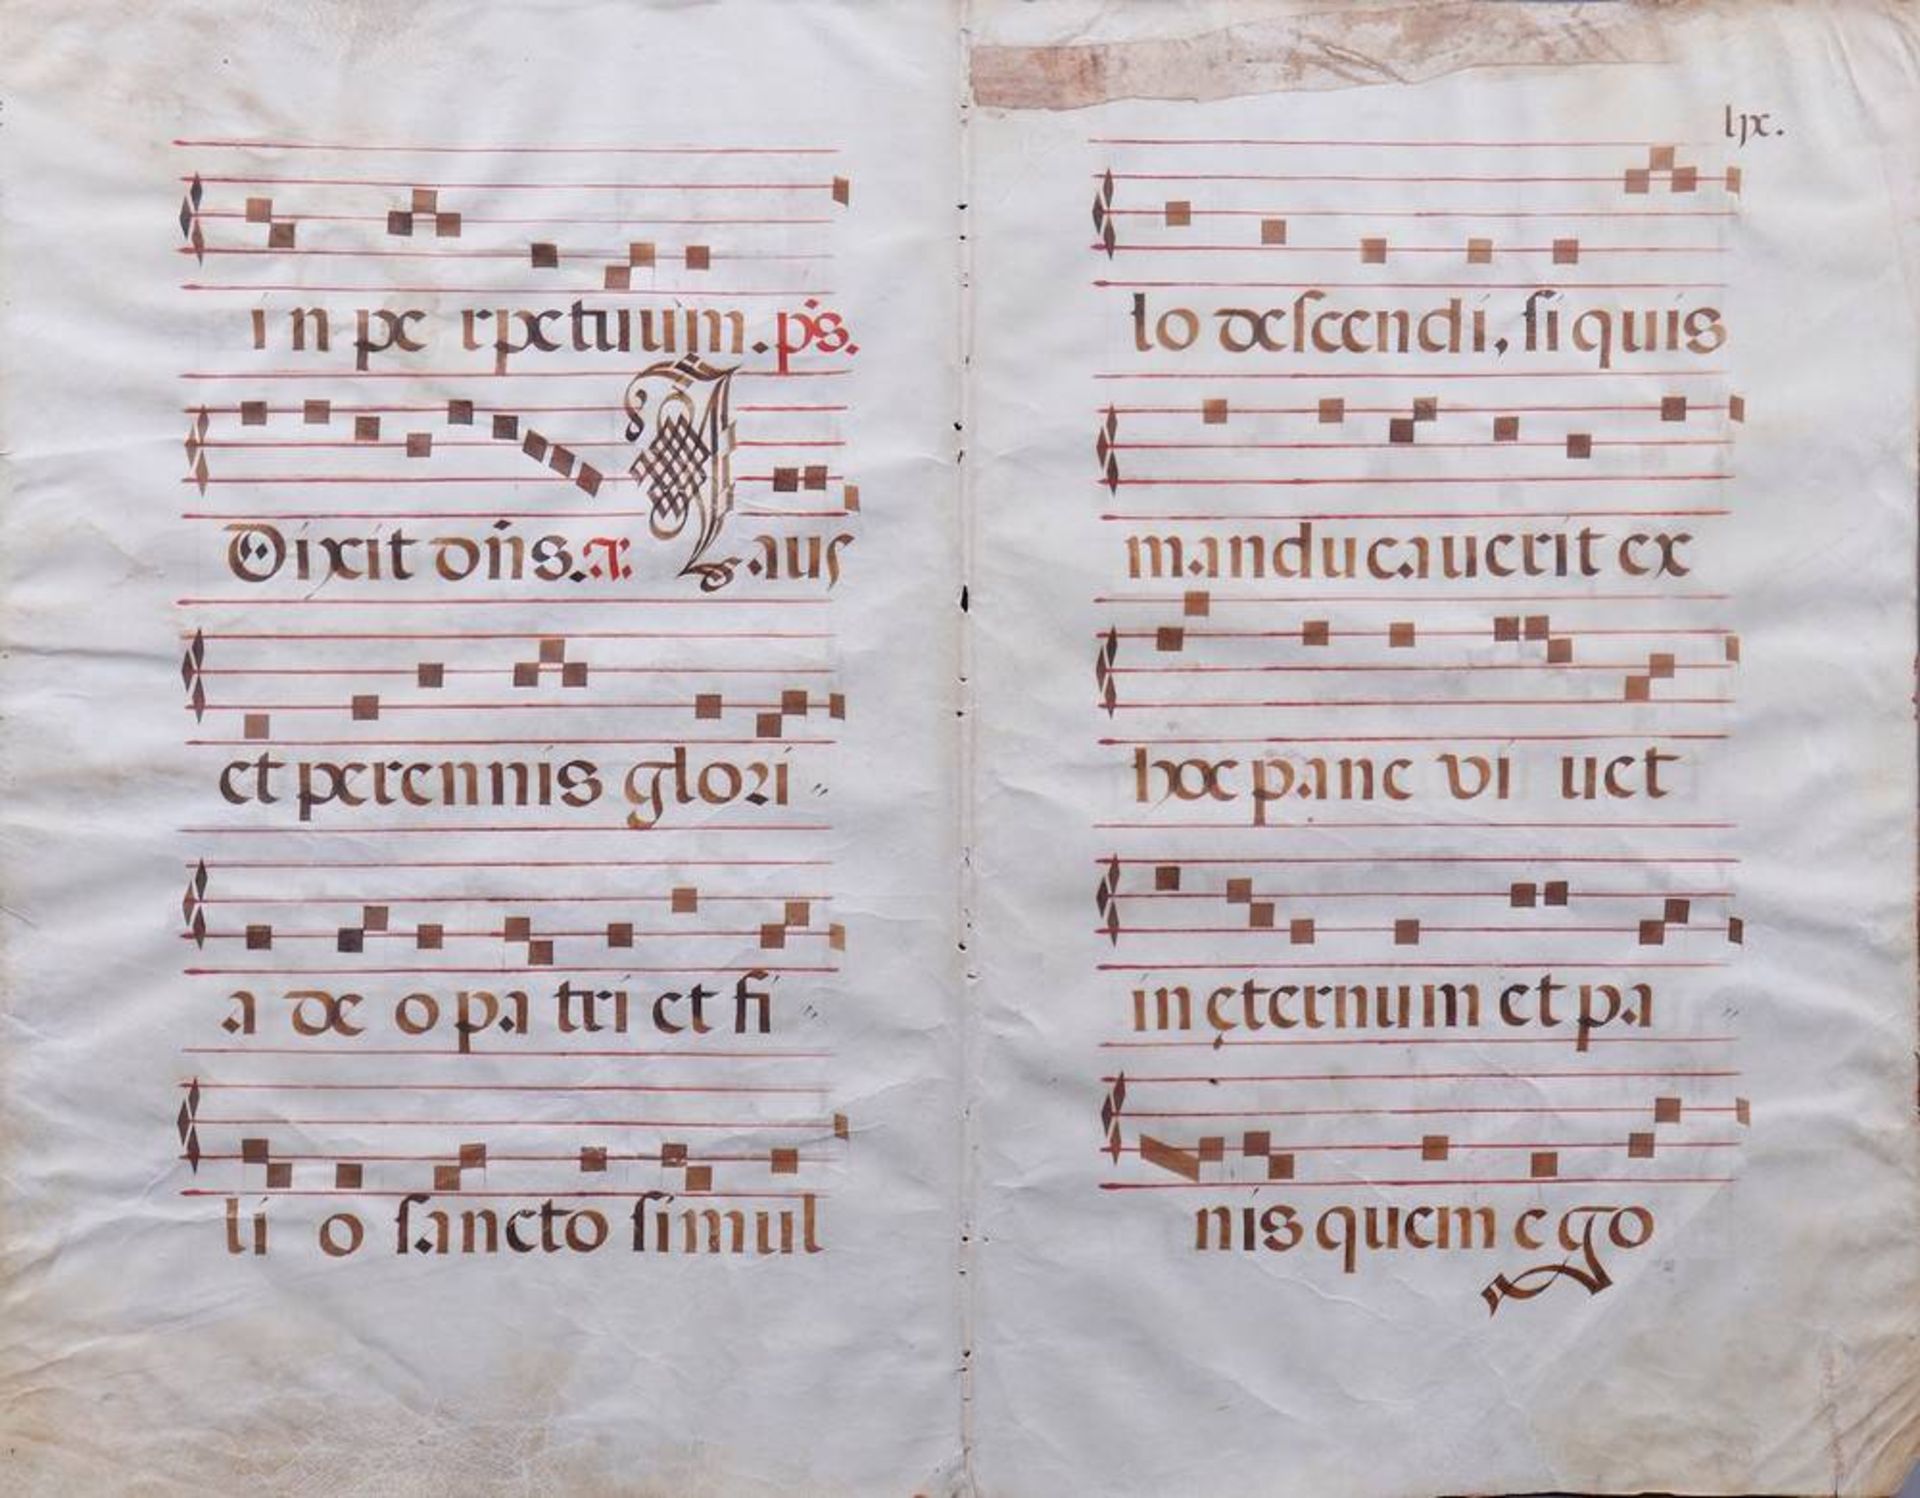 in pe rpetuum. ps.
Dixit dñs. a. Laus
et perennis glori
a de o pa tri et fi
li o sancto simul
ljx.
lo descendi, si quis
manducauerit ex
hoc pane vi uet
in ęternum et pa
nis quem ego